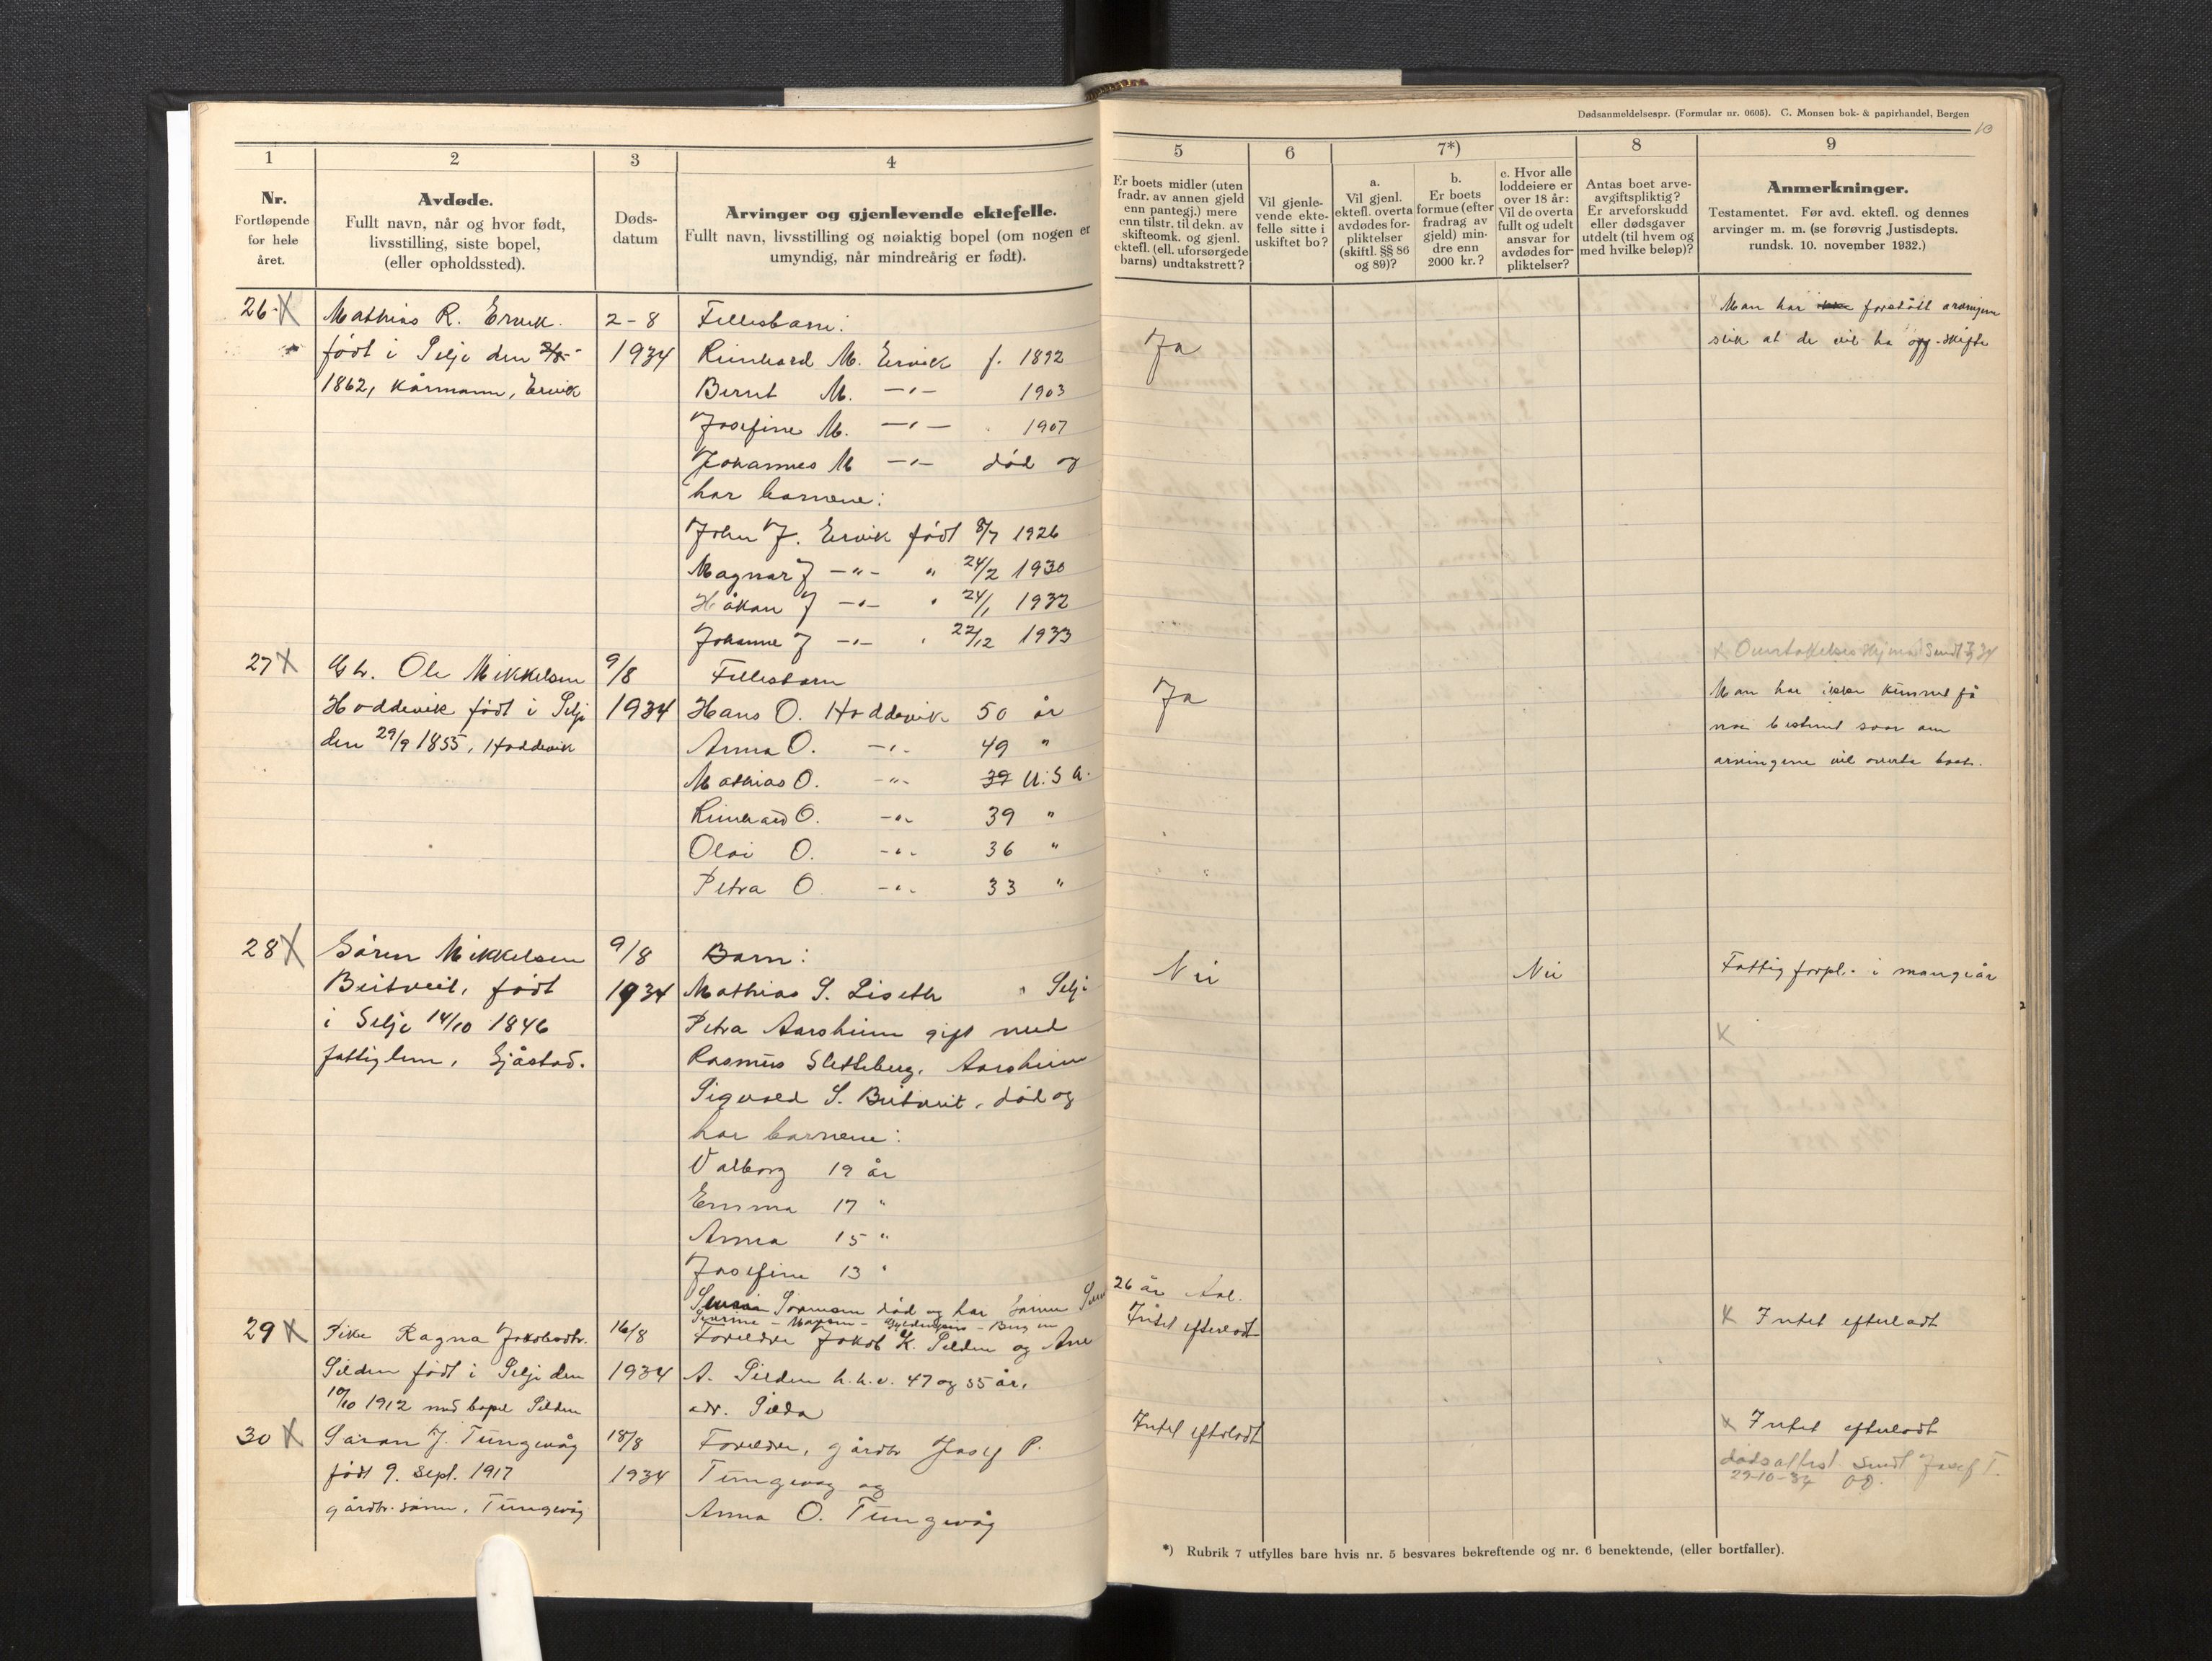 Dødsanmeldelsespr. (Formular nr. 0605). C. Monsen bok- & papirhandel, Bergen
10
1
2
3
4
5
6
7*)
8
9
Nr.
Fortløpende
for hele
året.
Avdøde.
Fullt navn, når og hvor født,
livsstilling, siste bopel,
(eller opholdssted).
Døds-
datum
Arvinger og gjenlevende ektefelle.
Fullt navn, livsstilling og nøiaktig bopel (om nogen er
umyndig, når mindreårig er født).
Er boets midler (uten
fradr. av annen gjeld
enn pantegj.) mere
enn tilstr. til dekn. av
skifteomk. og gjenl.
ektefl. (ell. uforsørgede
barns) undtakstrett?
Vil gjenle-
vende ekte-
felle sitte i
uskiftet bo?
a.
Vil gjenl.
ektefl. overta
avdødes for-
pliktelser
(skiftl. §§ 86
og 89)?
b.
Er boets
formue (efter
fradrag av
gjeld) min-
dre enn
2000 kr.?
c. Hvor alle
loddeiere er
over 18 år:
Vil de overta
fullt og udelt
ansvar for
avdødes for-
pliktelser?
Antas boet arve-
avgiftspliktig?
Er arveforskudd
eller dødsgaver
utdelt (til hvem og
med hvilke beløp)?
Anmerkninger.
Testamentet. Før avd. ektefl. og dennes
arvinger m. m. (se forøvrig Justisdepts.
rundsk. 10. november 1932.)
26. X
Mathias R. Ervik.
født i Selje den
1862, kårmann, Ervik
2-8
1934
Fellesbarn:
Reinhard M. Ervik f. 1892
Bernt M. -"- 1903
Josefine M. -"- 1907
Johannes M -"- død og
har barnene:
John J. Ervik født 8/7 1926
Magnar J -"- " 24/2 1930
Håkan J -"- " 24/1 1932
Johanne J -"- " 22/12 1933
Ja
Man har forstått arvingene
slik at de vil ha off. skifte
27 X
Ole Mikkelsen
Hoddevik født i Selje
den 29/9 1855, Hoddevik
9/8
1934
Fellesbarn
Hans O. Hoddevik 50 år
Anna O. -"- 49 "
Mathias O. -"- 39 U.S.A.
Reinhard O. -"- 39 "
Olai O. -"- 36 "
Petra O. -"- 33 "
Ja
Man har ikke kunnet få
noe bestemt svar om
arvingene vil overta boet.
28 X
Søren Mikkelsen
Beitveit, født
i Selje 14/10 1846
fattiglem, Sjåstad.
9/8
1934
Barn:
Mathias S. Liseth " Selje
Petra Aarsheim gift med
Rasmus Sletteberg, Aarsheim
Sigvald S. Beitveit, død og
har barnene:
Valborg 19 år
Emma 17 "
Anna 15 "
Josefine 13 "
Sørensen død og har
26 år
Nei
Nei
Fattigforpl. i mange år
X
29 X
Pike Ragna Jakobsdtr.
Silden født i Selje den
10/10 1912 med bopel Silden
16/8
1934
Foreldre Jakob K. Silden og Ane
A. Silden h.h.v. 47 og 55 år.
adr. Silda
Intet efterladt
X Intet efterladt
30 X
Søran J. Tungevåg
født 9. sept. 1917
gårdbr. sønn, Tungevåg
18/8
1934
Foreldre, gårdbr Josef P.
Tungevåg og
Anna O. Tungevåg
Intet efterladt
X Intet efterladt
dødsattest sendt Josef T.
29-10-34
*) Rubrik 7 utfylles bare hvis nr. 5 besvares bekreftende og nr. 6 benektende, (eller bortfaller).